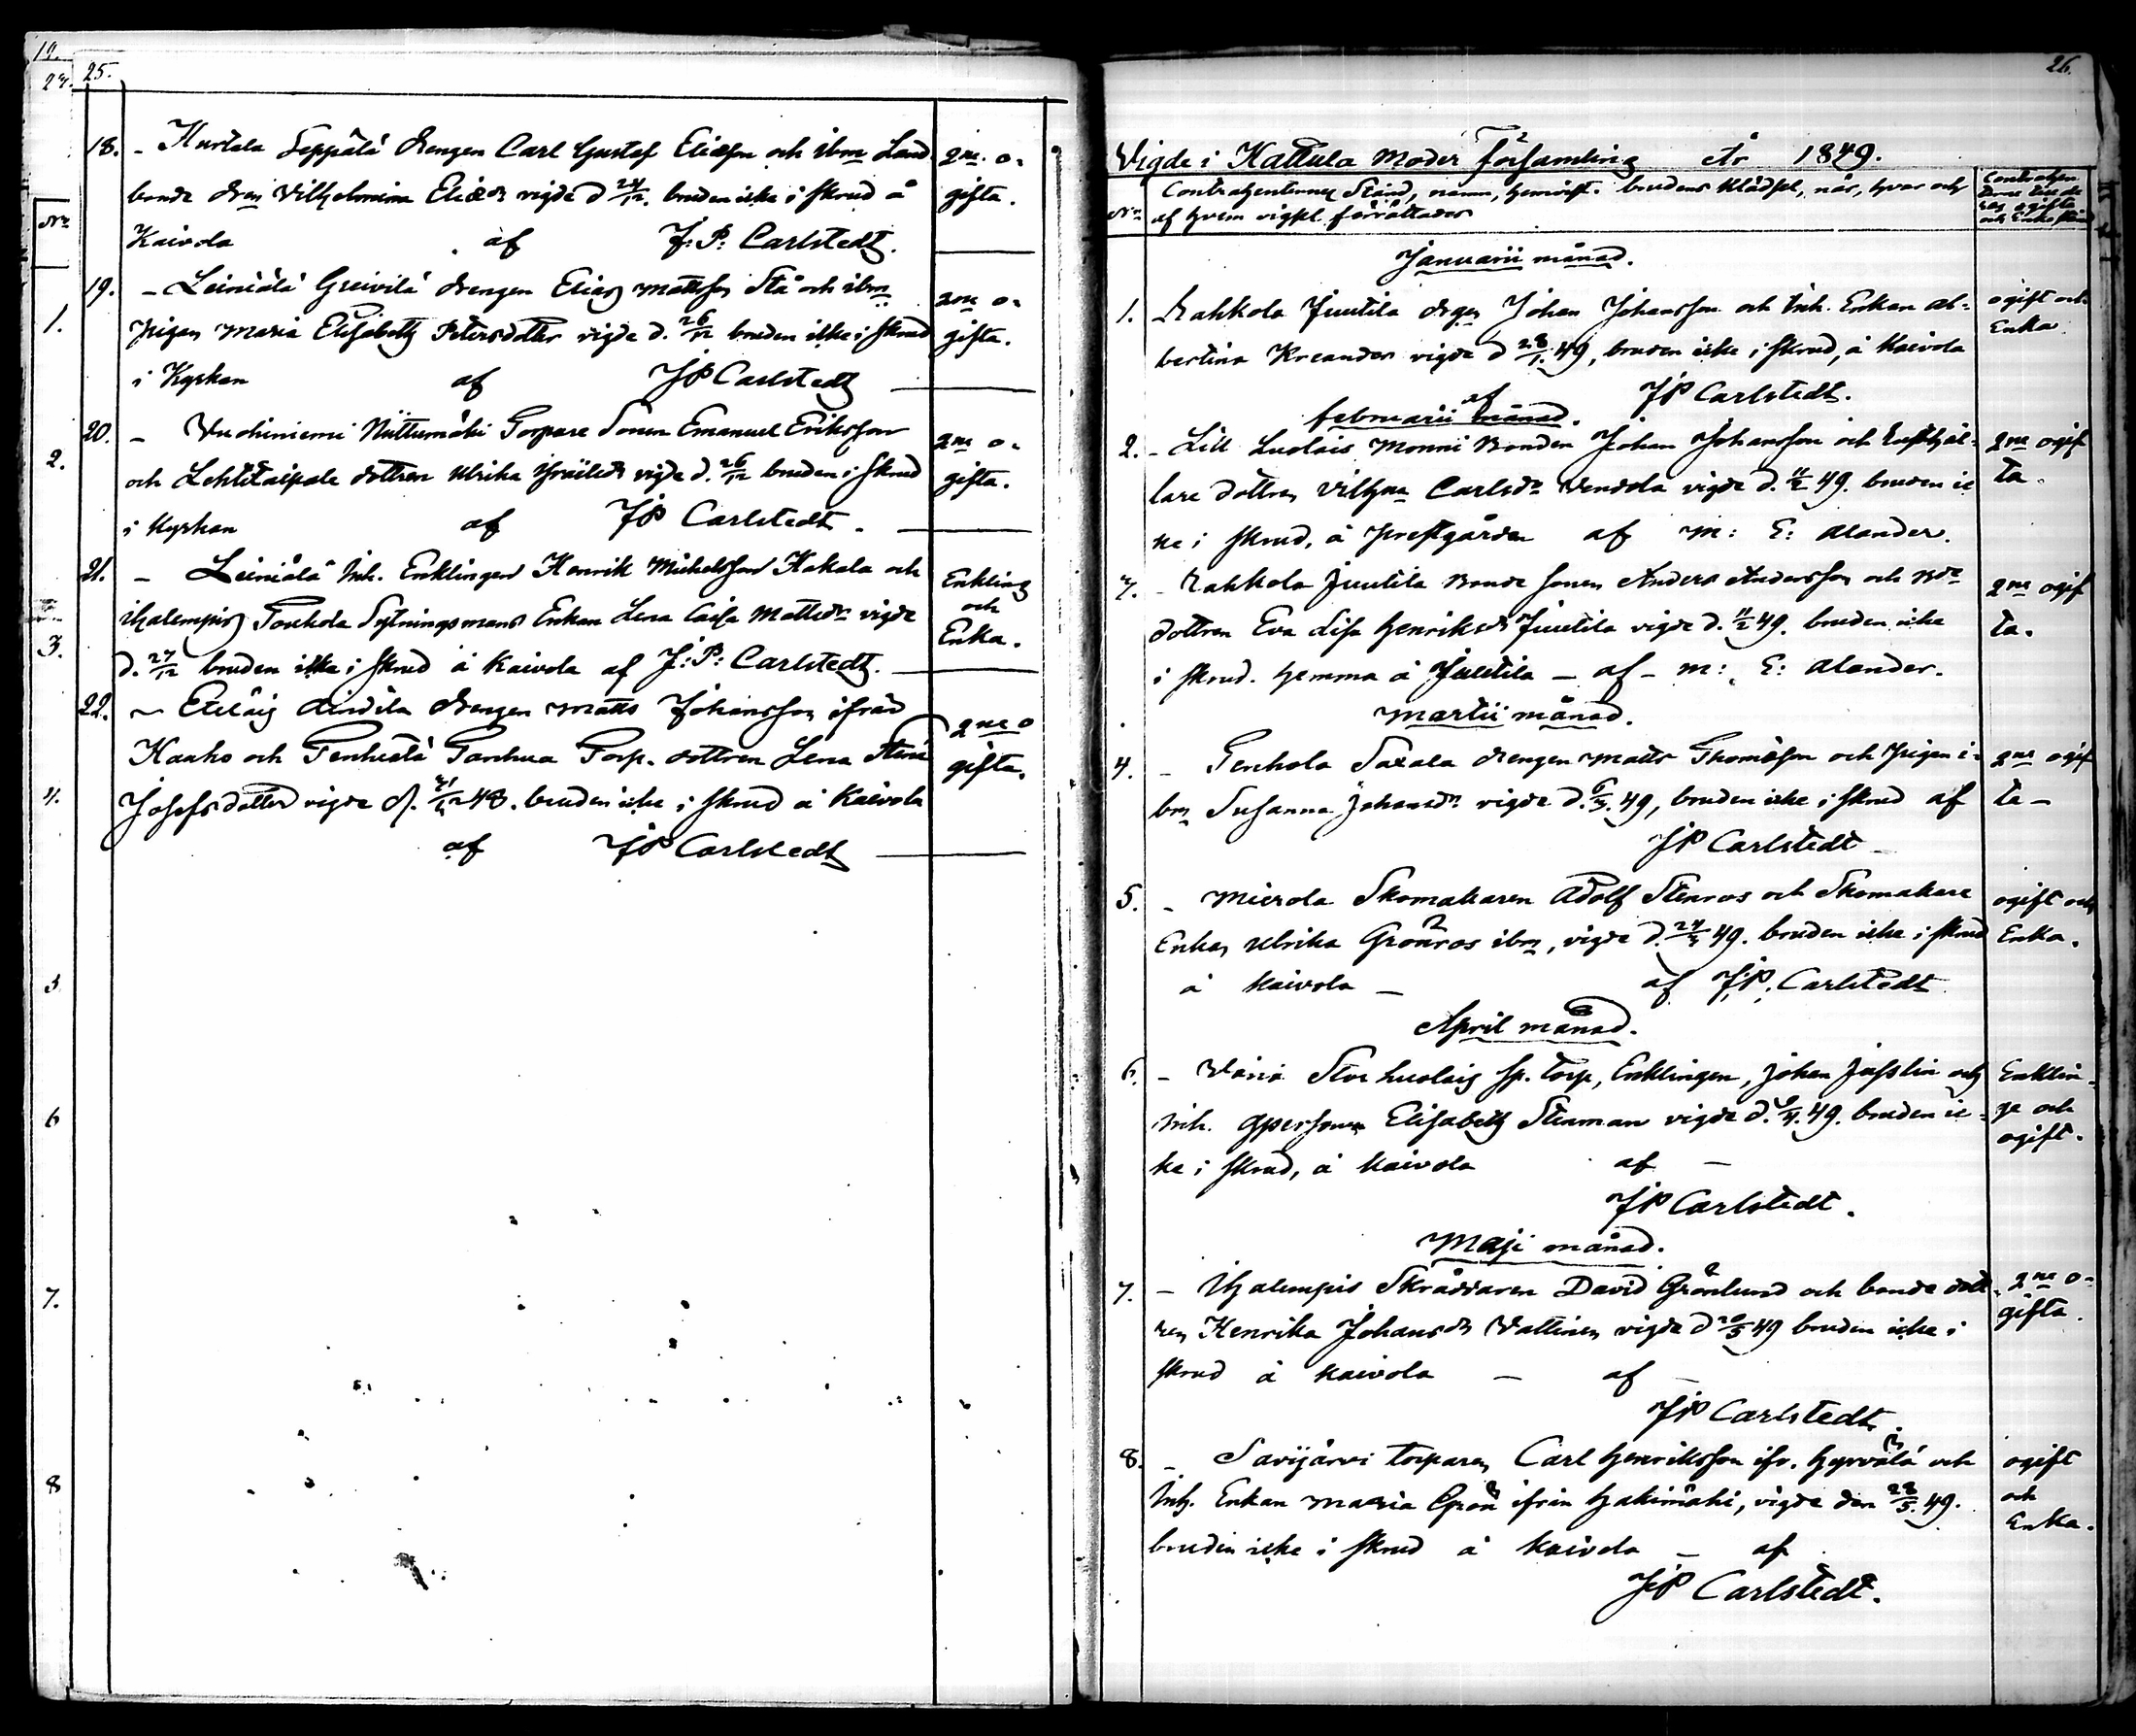 19.
27.
25.
18. - Hurtala Seppälä drengen Carl Gustaf Eliasson och ibm Land 2ne o-
bonde dren Vilhelmina Eliaedr vigde d 24/12. bruden icke i skrud å gifta.
Kaivola af J: P: Carlstedt.
19. - Leiniälä Greivilä drengen Elias Mattsson Stå och ibm 2ne o-
pigan Maria Elisabeth Petersdotter vigde d. 26/12 bruden icke i skrud gifta.
i Kyrkan af JP Carlstedt
20. - Vuohiniemi Niittumäki Torpare Sonen Emanuel Eriksson 2ne o-
och Lehtitaipale dottren Ulrika Israelsdr vigde d. 26/12 bruden i skrud gifta.
i Kyrkan af JP Carlstedt.
21. - Leiniälä Inh. Enklingen Henrik Michelsson Kakala och Enkling
Ihalempis Toukola Sytningsmans Enkan Lena Caisa Mattsdr vigde och Enka.
d. 27/12 bruden icke i skrud å Kaivola af J: P: Carlstedt.
22. - Eteläis drengen Matts Johansson ifrån 2ne o
Kauho och Tenhiälä Tanhua Torp. dottren Lena Stina gifta.
Josefsdotter vigde d. 31/12 48. bruden icke i skrud å Kaivola
af JP Carlstedt
Nro
1.
2.
3.
4.
5
6
7.
8
26.
Vigde i Hattula Moder Församling År 1849.
Nro Contrahenternes Stånd, namn, hemvist. brudens klädsel, når, hvar och
af hvem vigsel förrättades
Januarii månad.
1. Rahkola Juutila drgen Johan Johansson och Inh. Enkan Al- ogift och
bertina Kreander vigde d 28/1. 49, bruden icke i skrud, å Kaivola Enka.
af JP Carlstedt.
Februarii månad.
2. - Lill Luolais Monni Bonden Johan Johansson och 2ne ogif
lare dottren Vilhna Carlsdr Vendola vigde d. 11/2 49. bruden ic ta.
ke i skrud, å prestgården af M: E: Alander.
3. - Rahkola Juutila Bonde sonen Anders Andersson och Bde 2ne ogif
dottren Eva Lisa Henriksdr Juutila vigde d. 11/2 49. bruden icke ta.
i skrud. hemma å Juutila - af - M: E: Alander.
Martii månad.
4. - Tenhola Saxala drengen Matts Thomasson och pigan i- 2ne ogif
bm Susanna Johansdr vigde d. 6/3. 49, bruden icke i skrud af ta -
JP Carlstedt
5. - Mierola Skomakaren Adolf Stenroos och Skomakare ogift och
Enkan Ulrika Grönroos ibm, vigde d. 24/3 49. bruden icke i skrud Enka.
å Kaivola - af JP. Carlstedt
April månad.
6. - Wänä Stor Luolais sp. torp, Enklingen, Johan Jusslin och Enklin-
Inh. qpersonen Elisabeth Stenman vigde d. 9/4. 49. bruden ic- ge och
ke i skrud, å Kaivola af - ogift.
JP Carlstedt.
Maji månad.
7. - Ihalempis Skräddaren David Grönlund och bonde dott- 2ne o-
ren Henrika Johansdr Vattinen vigde d 20/5 49 bruden icke i gifta.
skrud å Kaivola - af -
JP Carlstedt.
8. - Savijärvi torparen Carl Henriksson ifr. Hyrvälä och ogift
Inh. Enkan Maria Grön ifrån Hakimäki, vigde den 28/5. 49. och
bruden icke i skrud å Kaivola - af Enka.
JP Carlstedt.